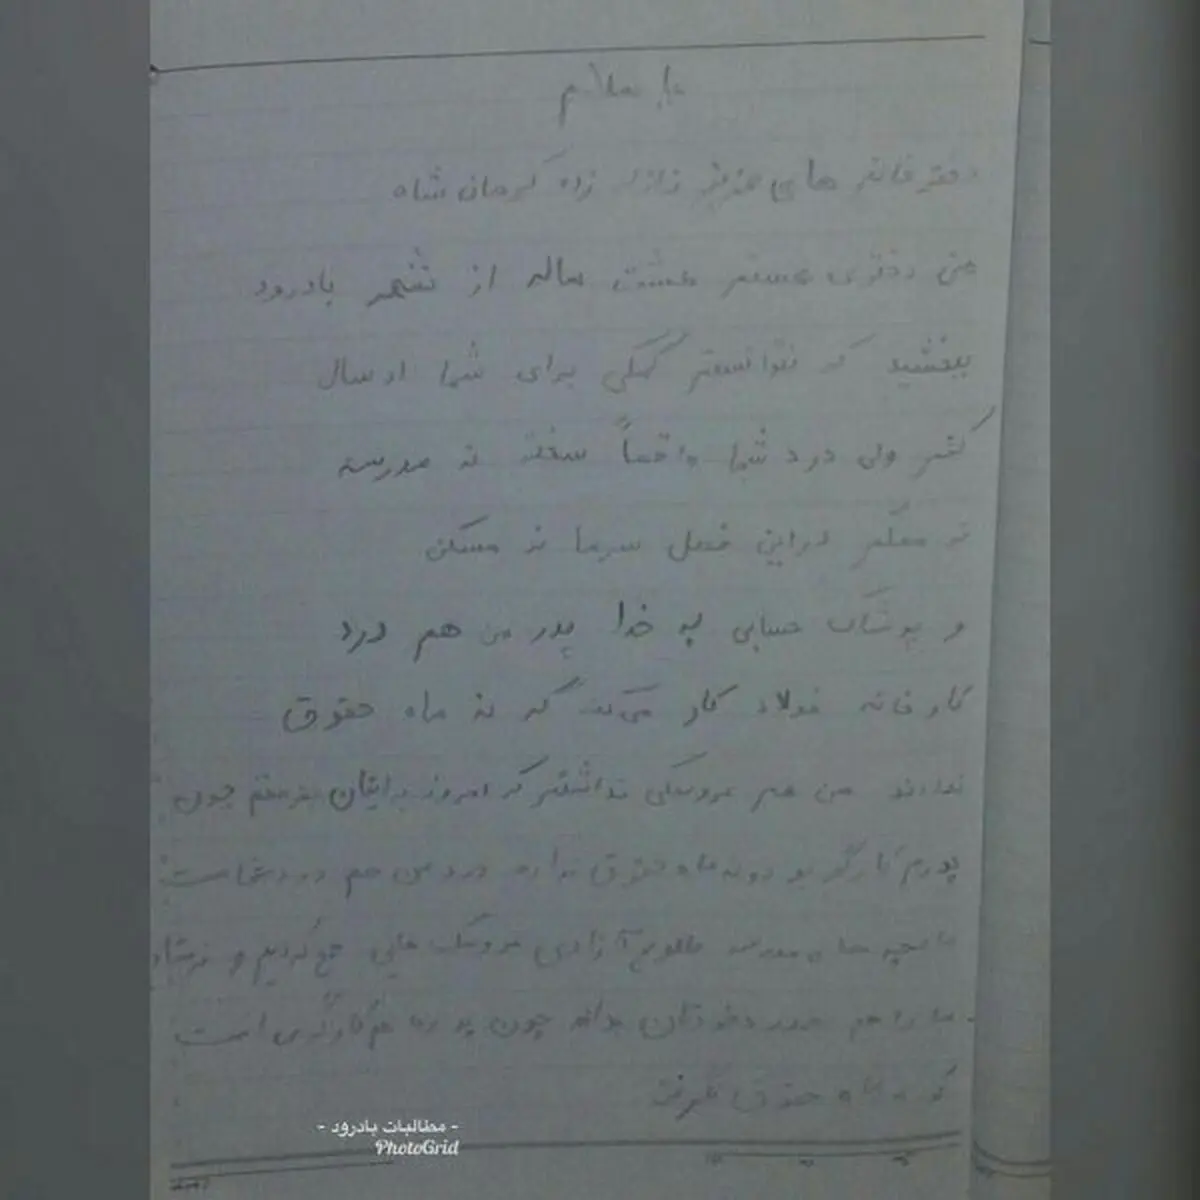 با سلام
دختر خانم های عزیز زلزله زده کرمان شاه
من دختری هستم هشت ساله از شهر بادرود
ببخشید که نتوانستم کمکی برای شما ارسال
کنم ولی درد شما واقعاً سخته نه مدرسه
نه معلم در این فصل سرما نه مسکن
و پوشاک حسابی به خدا پدر من هم درد
کارخانه فولاد کار می کند که نه ماه حقوق
ندارند من هم عروسکی نداشتم که امروز برایتان بفرستم چون
پدرم کارگر بو و نه ماه حقوق نداره درد من هم درد شماست
با بچه های مدرسه طلوع آزادی عروسک هایی جمع کردیم و
ما را هم خودتان بدانید چون پدر ما هم کارگری است
که نه ماه حقوق نگرفته
- مطالبات بادرود -
PhotoGrid